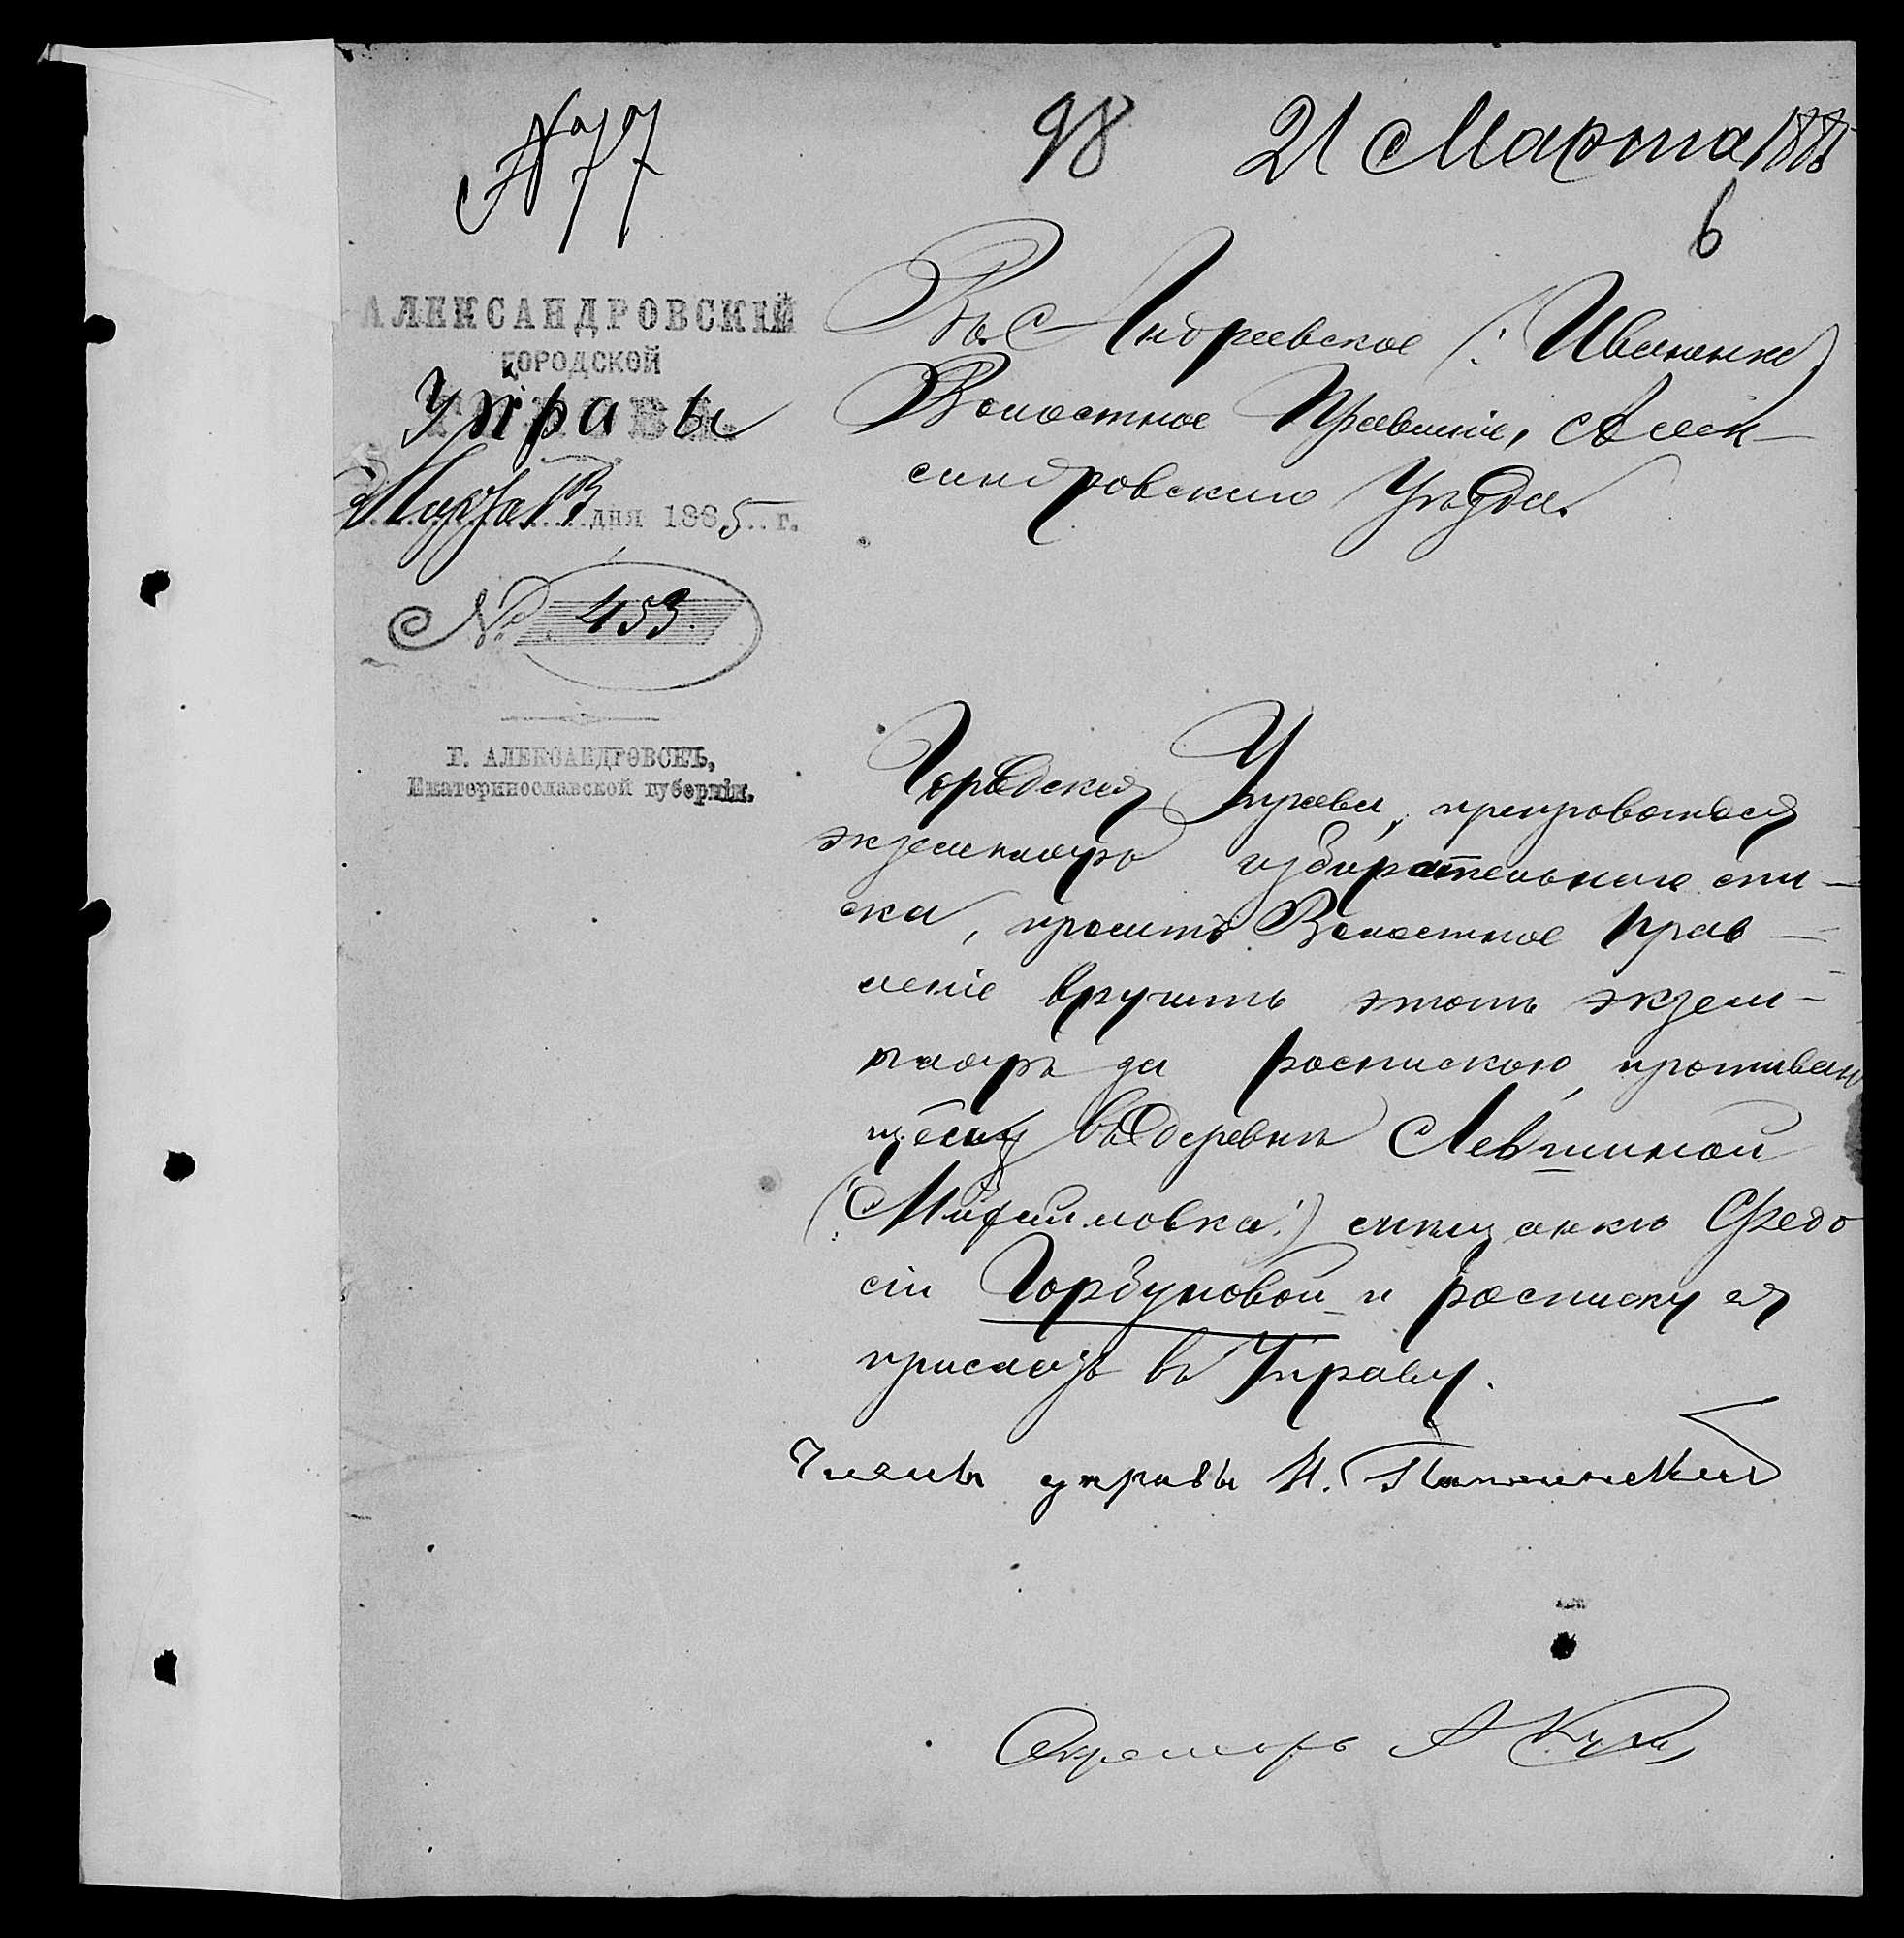 № 77
98
21 Марта 1885
6
АЛЕКСАНДРОВСКІЙ
ГОРОДСКОЙ
Управы
Марта 13 дня 1885 г.
№ 453.
Г. АЛЕКСАНДРОВСКЪ,
Екатеринославской губерніи.
Въ Андреевское (: Иваненко)
Волостное Правленіе, Алек-
сандровскаго Уѣзда.
Городская Управа, препровождая
экземпляръ избирательнаго спи-
ска, проситъ Волостное Прав-
леніе вручить этотъ экзем-
пляръ за роспискою, проживаю
щей въ деревнѣ Левшиной
мѣщанкѣ Федо
сіи Горбуновой и росписку ея
прислать въ Управу.
Членъ управы
Секретарь А